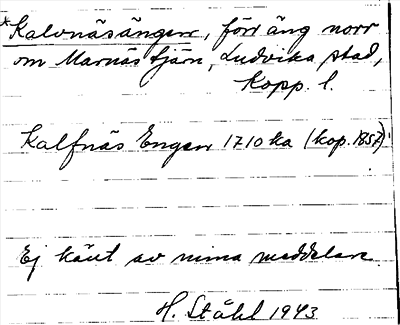 *Kalvnäsängen, förr äng norr
om Marnäs tjärn, Ludvika stad,
Kopp. l.
Kalfnäs Engen 1710 ka (kop. 1857)
Ej känt av mina meddelare
H. Ståhl 1943